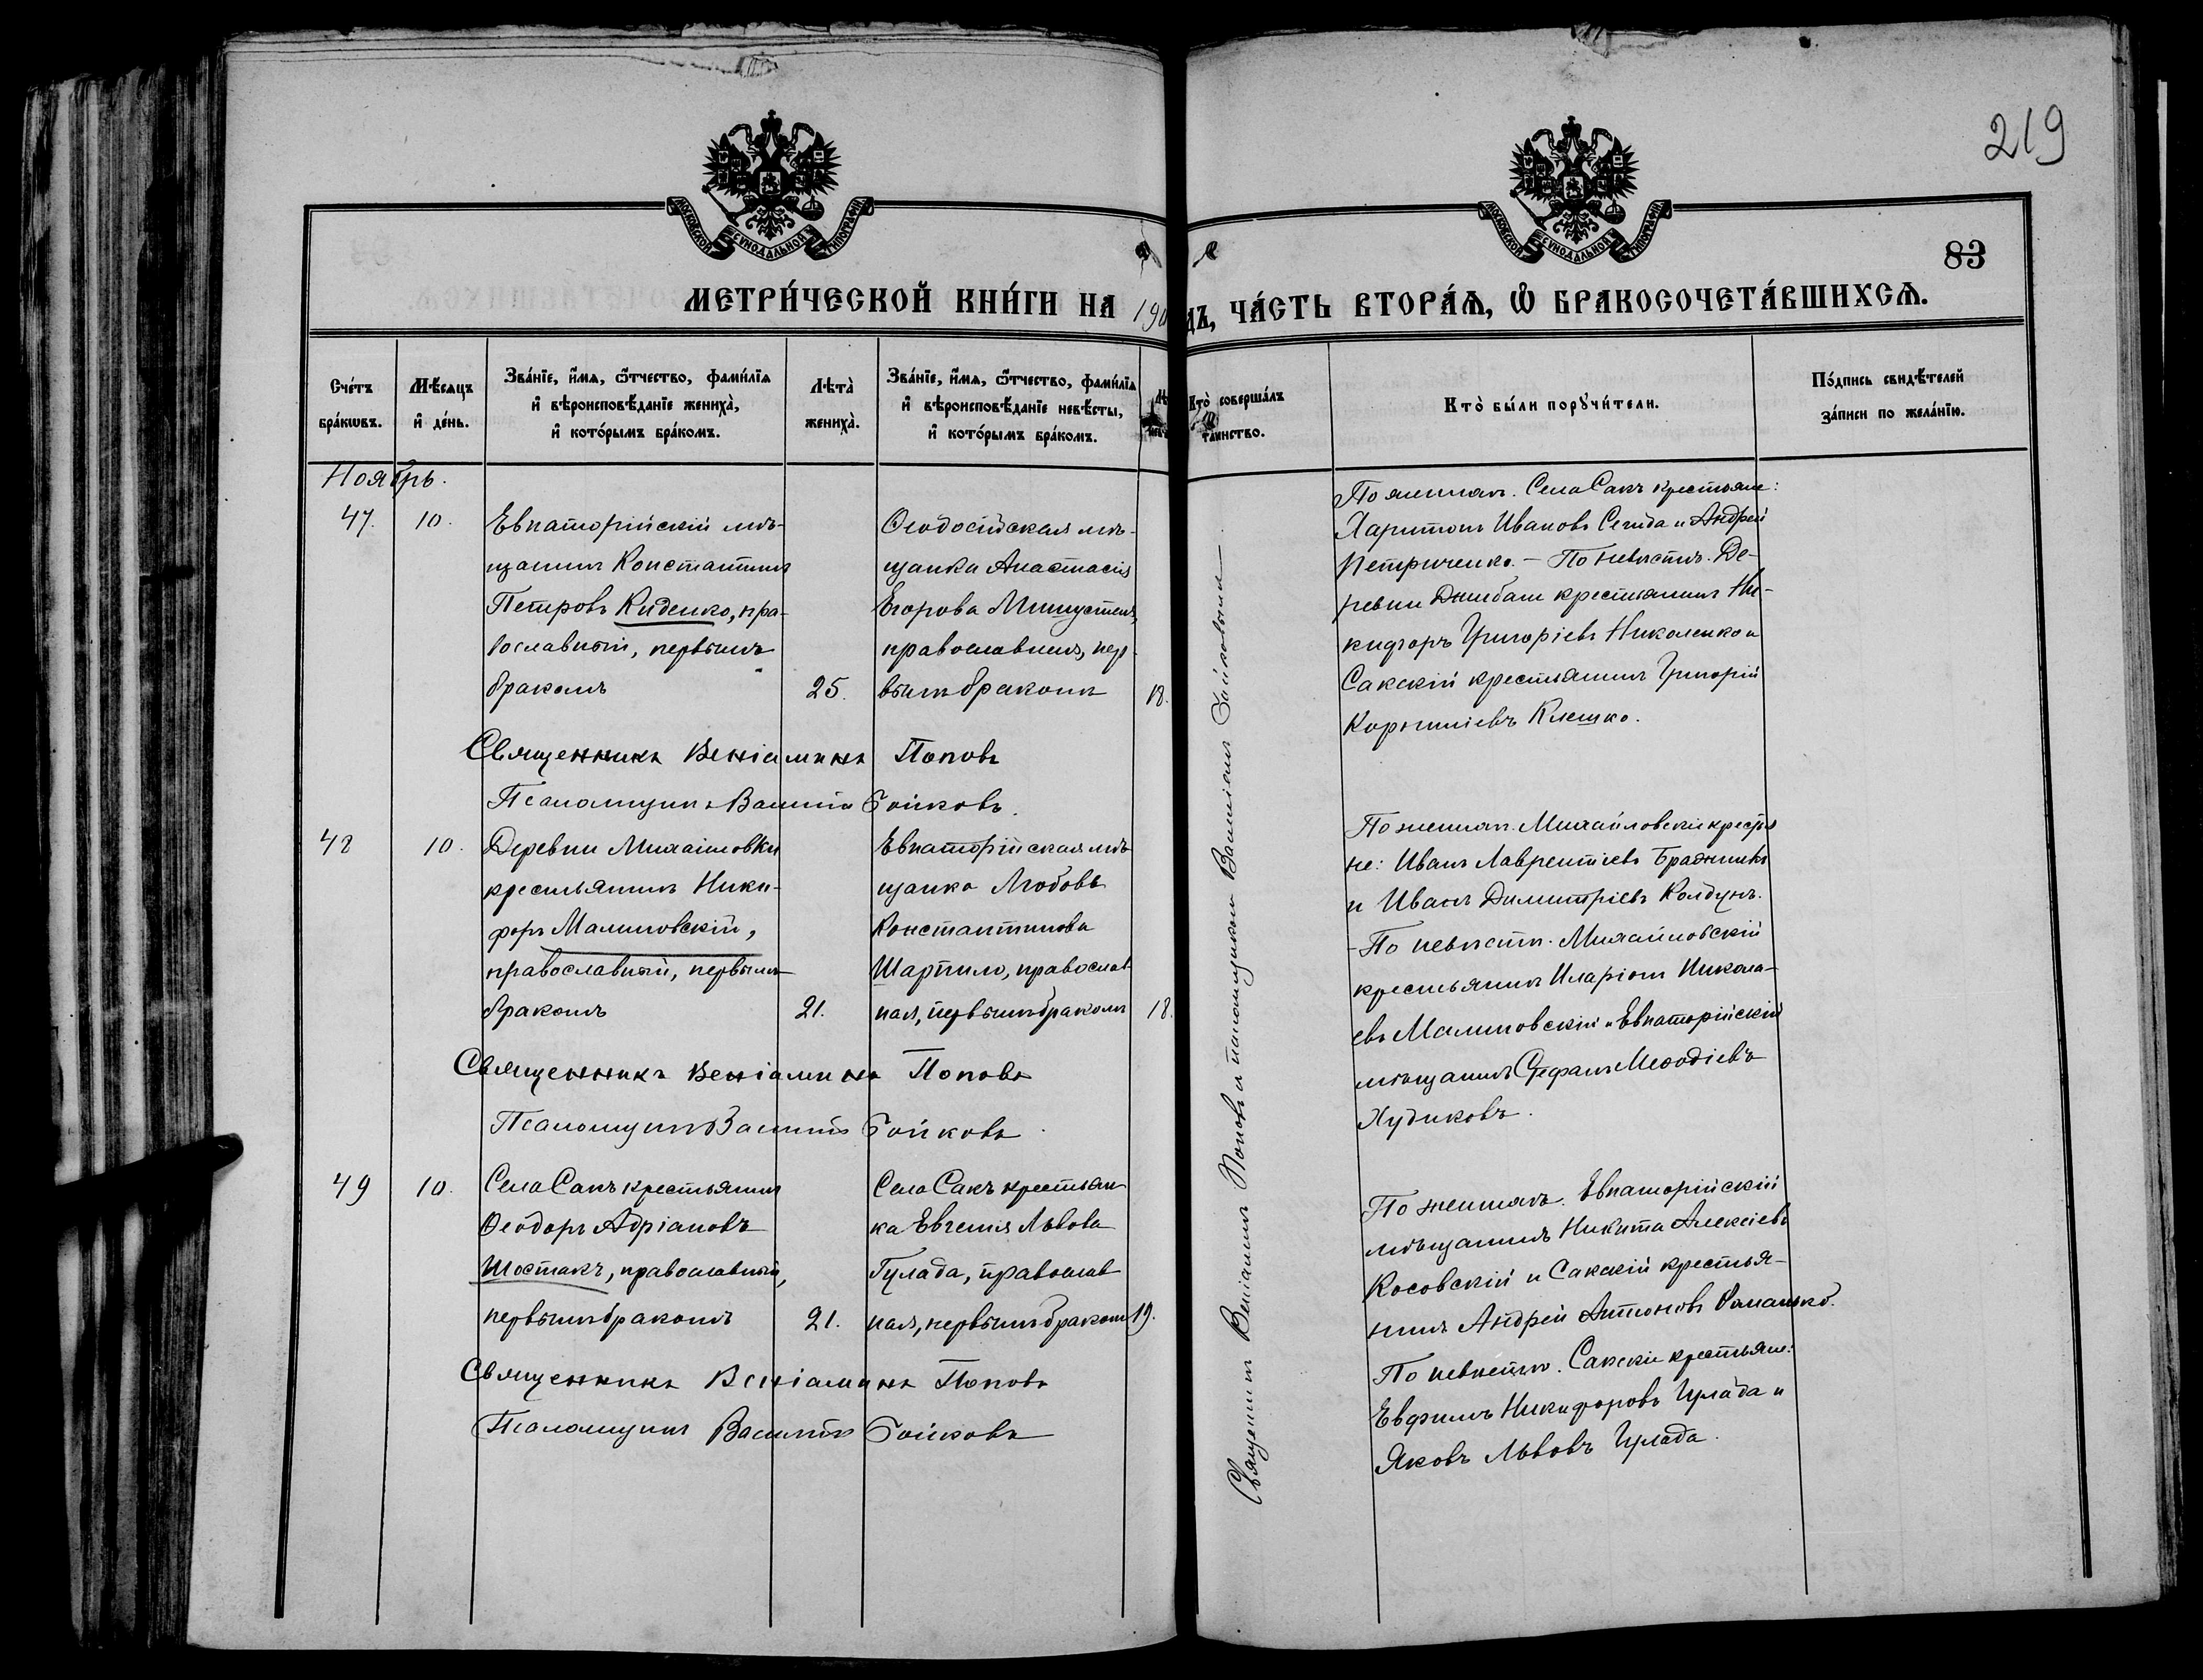 219
83
МОСКОВСКОЙ СУНОДАЛЬНОЙ ТИПОГРАФІИ
МОСКОВСКОЙ СУНОДАЛЬНОЙ ТИПОГРАФІИ
МЕТРИ́ЧЕСКОЙ КНИ́ГИ НА 190
ДЪ, ЧА́СТЬ ВТОРА́Ѧ, Ѡ҆ БРАКОСОЧЕТА́ВШИХСѦ.
Сче́тъ бра́кѡвъ.
Мѣ́сѧцъ и҆ де́нь.
Зва́нїе, и҆́мѧ, ѻ҆́тчество, фами́лїѧ и҆ вѣроисповѣ́данїе жениха̀, и҆ кото́рымъ бра́комъ.
Лѣта̀ жениха̀.
Зва́нїе, и҆́мѧ, ѻ҆́тчество, фами́лїѧ и҆ вѣроисповѣ́данїе невѣ́сты, и҆ кото́рымъ бра́комъ.
Кто̀ соверша́лъ таинство.
Кто̀ бы́ли порꙋчи́тели.
По́дпись свидѣ́телей за́писи по жела́нїю.
Ноябрь.
47. 10.
Евпаторійскій мѣ-
щанинъ Константинъ
Петровъ Киденко, пра-
вославный, первымъ
бракомъ
25.
Ѳеодосійская мѣ-
щанка Анастасія
Егорова
православная, пер-
вымъ бракомъ
18.
По женихѣ. Села Сакъ крестьяне:
Харитонъ Ивановъ Сегида и Андрей
Петриченко. – По невѣстѣ. Де-
ревни крестьянинъ Ни-
кифоръ Григоріевъ Николенко и
Сакскій крестьянинъ Григорій
Корниліевъ Клешко.
Священникъ Веніаминъ Поповъ
Псаломщикъ Василій Бойковъ.
48 10.
Деревни Михайловки
крестьянинъ Ники-
форъ Малиновскій,
православный, первымъ
бракомъ
21.
Евпаторійская мѣ-
щанка Любовь
Константинова
Шарпило, православ-
ная, первымъ бракомъ
18.
По женихѣ. Михайловскіе крестья
не: Иванъ Лаврентіевъ Бражникъ
и Иванъ Димитріевъ Колдунъ.
– По невѣстѣ. Михайловскій
крестьянинъ Иларіонъ Никола-
евъ Малиновскій и Евпаторійскій
мѣщанинъ Стефанъ Меѳодіевъ
Худиковъ.
Священникъ Веніаминъ Поповъ
Псаломщикъ Василій Бойковъ
49 10.
Села Сакъ крестьянинъ
Ѳеодоръ Адріановъ
Шостакъ, православный,
первымъ бракомъ
21.
Села Сакъ крестьян
ка Евгенія Львова
Гулада, православ
ная, первымъ бракомъ
19.
По женихѣ. Евпаторійскій
мѣщанинъ Никита Алексіевъ
Косовскій и Сакскій крестья-
нинъ Андрей Антоновъ
По невѣстѣ. Сакскіе крестьяне:
Евфимъ Никифоровъ Гулада и
Яковъ Львовъ Гулада.
Священникъ Веніаминъ Поповъ
Псаломщикъ Василій Бойковъ
Священникъ Веніаминъ Поповъ и псаломщикомъ Василіемъ Бойковымъ